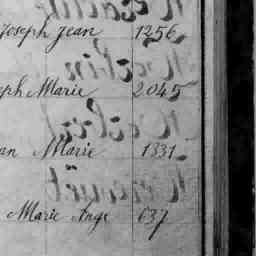 Joseph Jean 1256
eph Marie 2045
an Marie 1331
Marie Ange 637